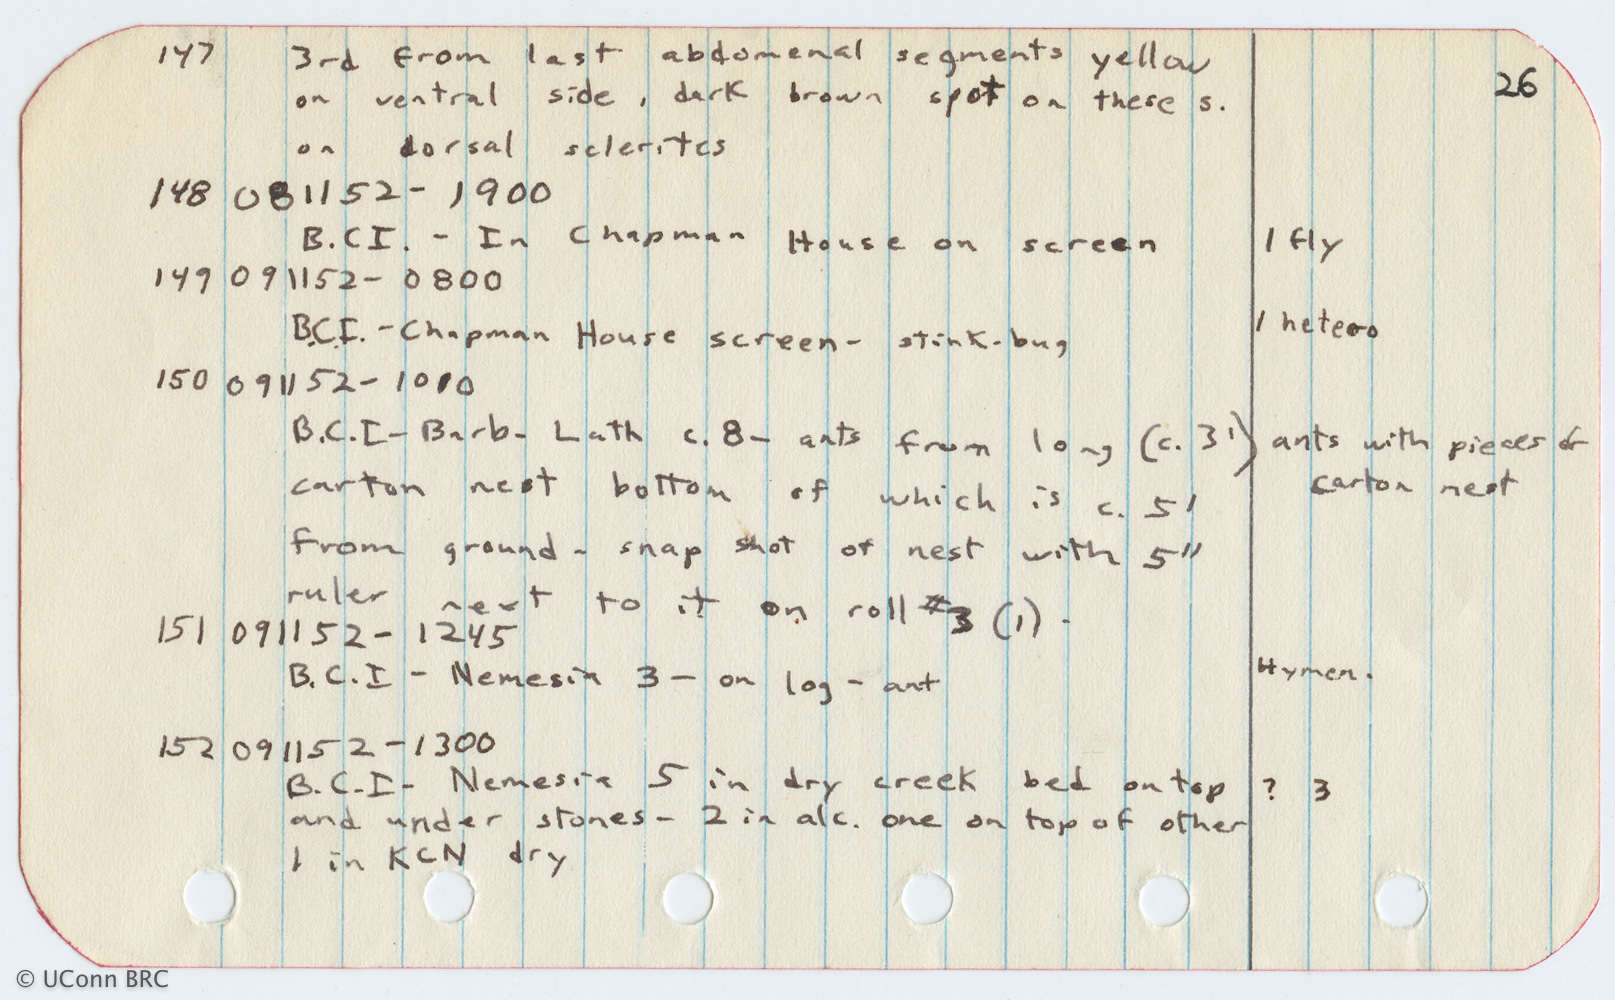 26
147 3rd from last abdomenal segments yellow
on ventral side, dark brown spot on these s.
on dorsal sclerites
148 081152- 1900
B.C.I. - In Chapman House on screen 1 fly
149 091152- 0800
B.C.I. - Chapman House screen- stink-bug 1 hetero
150 091152- 1010
B.C.I- Barb- Lath c. 8- ants from long (c. 3') ants with pieces of
carton nest bottom of which is c. 5' carton nest
from ground - snap shot of nest with 5"
ruler next to it on roll #3 (1) -
151 091152- 1245
B.C.I - Nemesia 3 - on log - ant Hymen.
152 091152 - 1300
B.C.I- Nemesia 5 in dry creek bed on top ? 3
and under stones- 2 in alc. one on top of other
1 in KCN dry
© UConn BRC